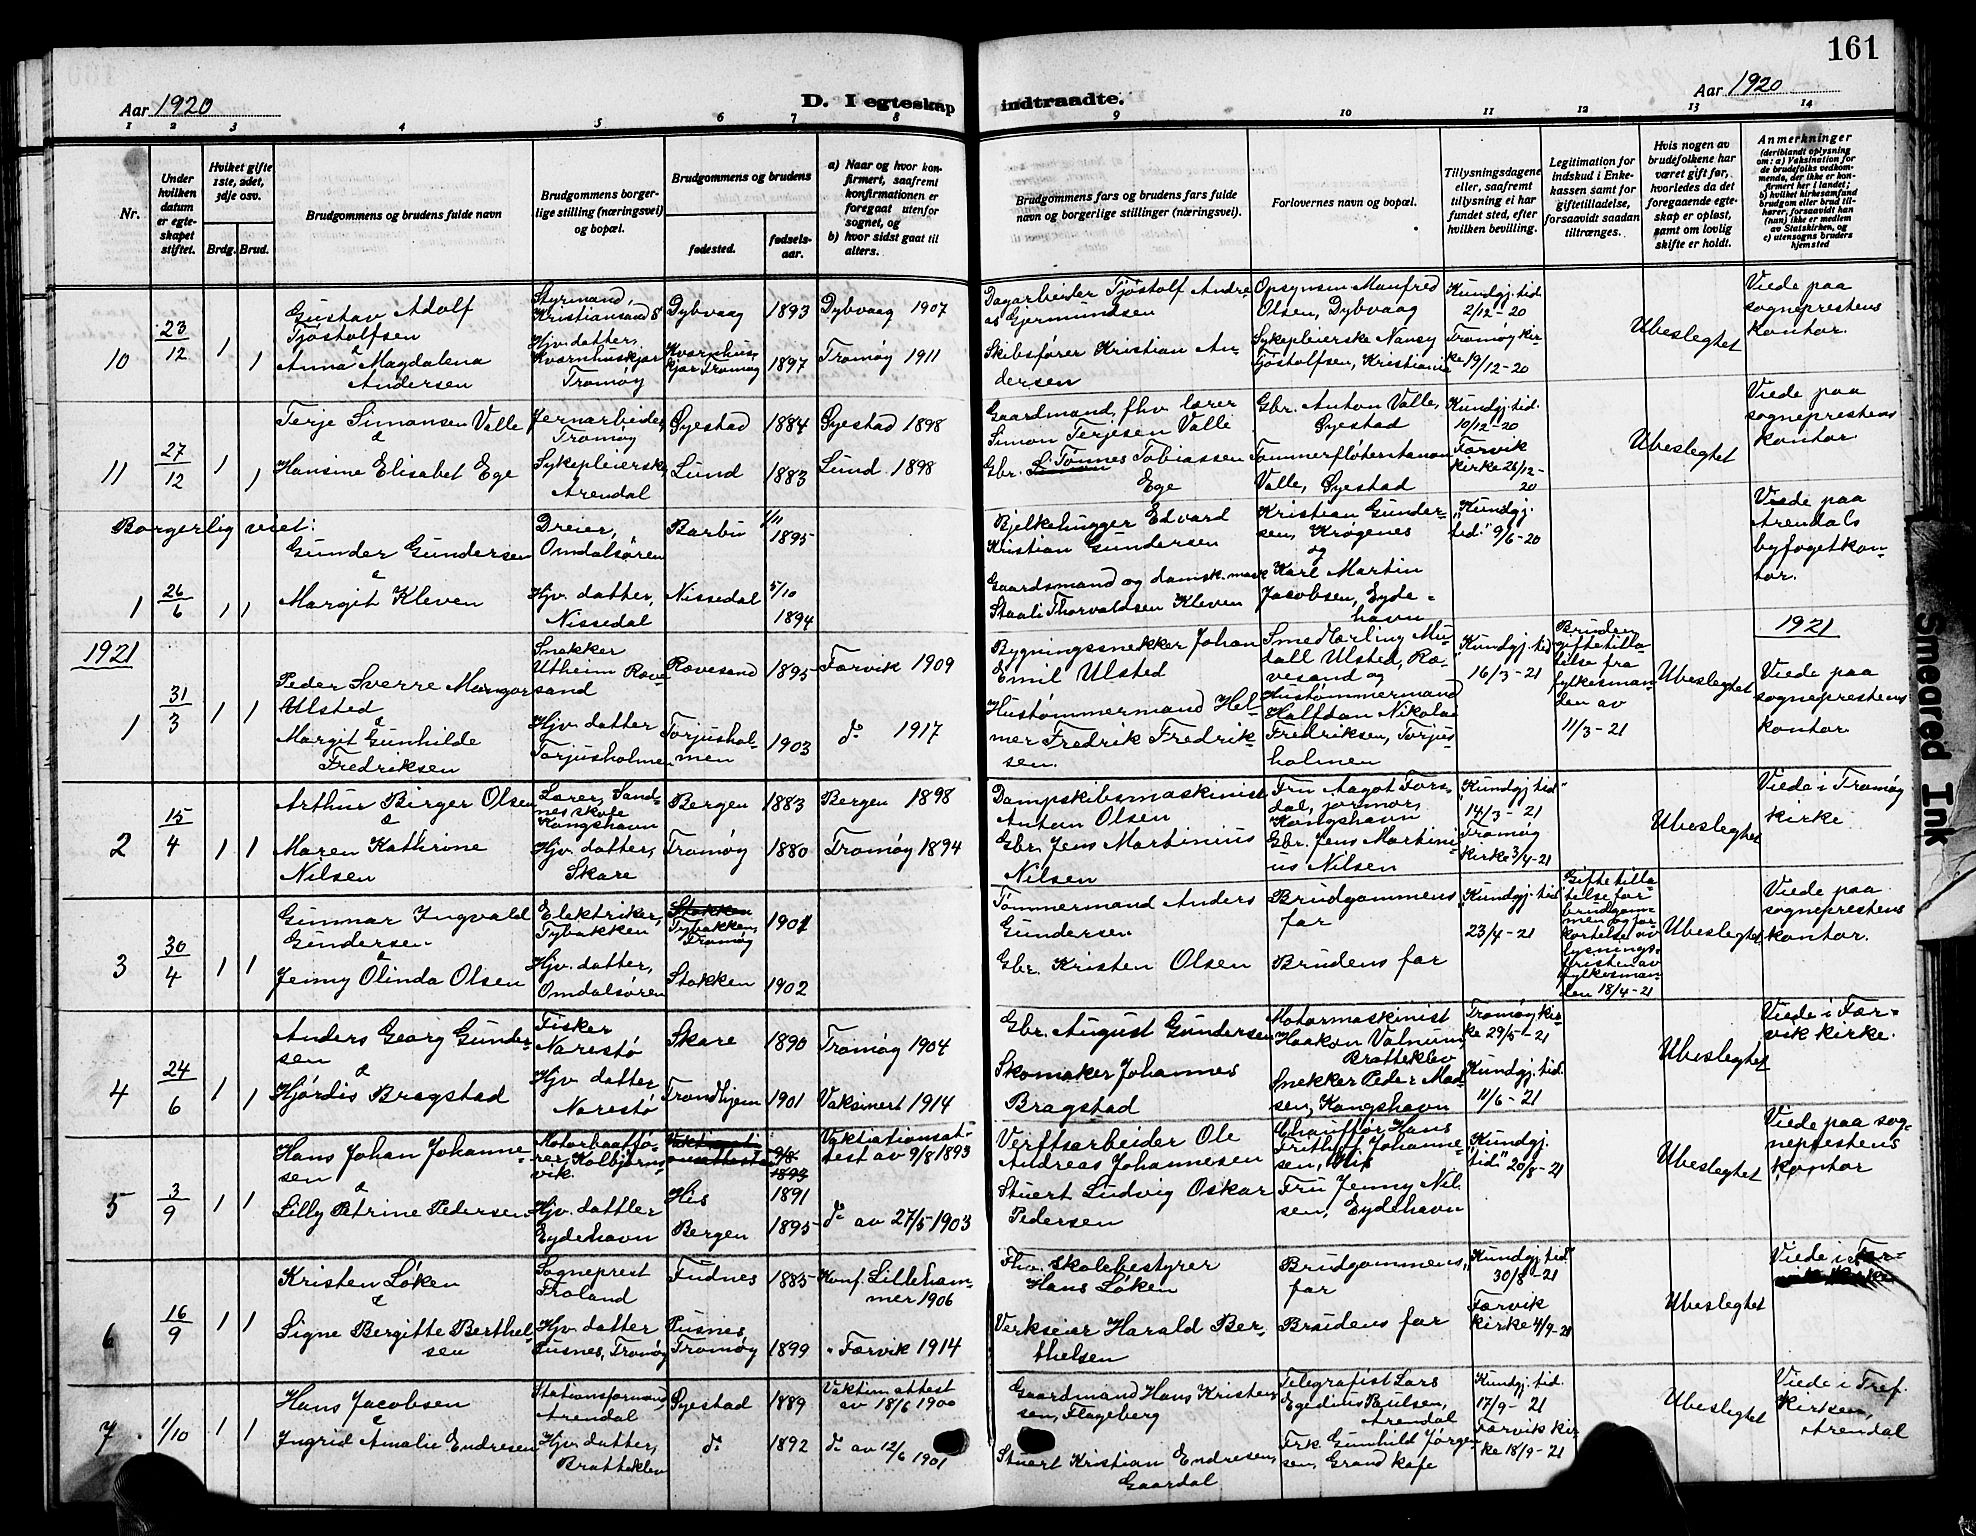 161
Aar 1920
D. I egteskap indtraadte.
Aar 1920
1 2 3 4 5 6 7 8 9 10 11 12 13 14
Nr.
Under hvilken datum er egteskapet stiftet.
Hvilket gifte 1ste, 2det, 3dje osv.
Brdg. Brud.
Brudgommens og brudens fulde navn
Brudgommens borgerlige stilling (næringsvei) og bopæl.
Brudgommens og brudens
fødested.
fødselsaar.
a) Naar og hvor konfirmert, saafremt konfirmationen er foregaat utenfor sognet, og
b) hvor sidst gaat til alters.
Brudgommens fars og brudens fars fulde navn og borgerlige stillinger (næringsvei).
Forlovernes navn og bopæl.
Tillysningsdagene eller, saafremt tillysning ei har fundet sted, efter hvilken bevilling.
Legitimation for indskud i Enkekassen samt for giftetilladelse, forsaavidt saadan tiltrænges.
Hvis nogen av brudefolkene har været gift før, hvorledes da det foregaaende egteskap er opløst, samt om lovlig skifte er holdt.
Anmerkninger
(deriblandt oplysning om: a) Vaksination for de brudefolks vedkommende, der ikke er konfirmert her i landet; b) hvilket kirkesamfund brudgom eller brud tilhører, forsaavidt han (hun) ikke er medlem av Statskirken, og c) utensogns bruders hjemsted
10 23/12 1 1
Gustav Adolf Tjøstolfsen
&
Anna Magdalena Andersen
Styrmand, Kristiansand S
Hjv. datter, Kvernhuskjær Tromøy
Dybvaag 1893 Dybvaag 1907
Kvernhuskjær Tromøy 1897 Tromøy 1911
Dagarbeider Tjøstolf Andreas Gjermundsen
Skibsfører Kristian Andersen
Opsynsm Manfred Olsen, Dybvaag
Sykepleierske Nancy Tjøstolfsen, Kristiania
Kundgj. tid. 2/12-20
Tromøy kirke 19/12-20
Ubeslegtet
Viede paa sogneprestens kontor.
11 27/12 1 1
Terje Simonsen Valle
&
Hansine Elisabet Ege
Jernarbeider, Tromøy
Sykepleiersk, Arendal
Øyestad 1884 Øyestad 1898
Lund 1883 Lund 1898
Gaardmand, fhv. lærer Simon Terjesen Valle
Gbr. Tønnes Tobiassen Ege
Gbr. Anton Valle, Øyestad
Valle, Øyestad
Kundgj. tid. 10/12-20
Færvik kirke 26/12-20
Ubeslegtet
Viede paa sogneprestens kontor
Borgerlig viet:
1 26/6 1 1
Gunder Gundersen
&
Margit Kleven
Dreier, Omdalsøren
Hjv. datter, Nissedal
Barbu 1/11 1895
Nissedal 5/10 1894
Bjelkehugger Edvard Kristian Gundersen
Gaardsmand og Thorvaldsen Kleven
Kristian Gundersen, Krøgenes
og
Karl Martin Jacobsen, Eydehavn
"Kundgj. tid." 9/6-20
Viede paa Arendals byfogetkontor.
1921
1921
1 31/3 1 1
Peder Sverre Ulsted
&
Margit Gunhilde Fredriksen
Snekker Utheim Rævesand
Hjv. datter Torjusholmen
Rævesand 1895 Færvik 1909
Torjusholmen 1903 do 1917
Bygningssnekker Johan Emil Ulsted
Hustømmermand Helmer Fredrik Fredriksen.
Ulsted, Rævesand og
Hustømmermand Halfdan Nikolai Fredriksen, Torjusholmen
"Kundgj. tid 16/3-21
Bruden giftetilladelse fra fylkesmanden av 11/3-21
Ubeslegtet
Viede paa sogneprestens kontor
2 15/4 1 1
Arthur Birger Olsen
&
Maren Kathrine Nilsen
Lærer, Sandnes skole Kongshavn
Hjv. datter, Skare
Bergen 1883 Bergen 1898
Tromøy 1880 Tromøy 1894
Dampskibsmaskinist Anton Olsen
Gbr. Jens Martinius Nilsen
Fru Aagot Forsdal, jormor, Kongshavn
Gbr. Jens Martinius Nilsen
"Kundgj. tid" 14/3-21
Tromøy kirke 3/4-21
Ubeslegtet
Viede i Tromøy kirke
3 30/4 1 1
Gunnar Ingvald Gundersen
&
Jenny Olinda Olsen
Elektriker, Tybakken
Hjv. datter, Omdalsøren
Stokken Tybakken, Tromøy 1901
Stokken 1902
Tømmermand Anders Gundersen
Gbr. Kristen Olsen
Brudgommens far
Brudens far
"Kundgj. tid" 23/4-21
Giftetilladelse for brudgommen og forkortelse av lysningsfristen av fylkesmanden 18/4-21
Ubeslegtet
Viede paa sogneprestens kontor.
4 24/6 1 1
Anders Georg Gundersen
&
Hjørdis Bragstad
Fisker Narestø
Hjv. datter Narestø
Skare 1890 Tromøy 1904
Trondhjem 1901 Vaksinert 1914
Gbr. August Gundersen
Skomaker Johannes Bragstad
Motormaskinist Haakon Valnum, Bratteklev
Snekker Peder Madsen, Kongshavn
Tromøy kirke 29/5-21
Kundgj. tid. 11/6-21
Ubeslegtet
Viede i Færvik kirke.
5 3/9 1 1
Hans Johan Johannesen
&
Lilly Petrine Pedersen
Motorbaatfører, Kolbjørnsvik.
Hjv. datter Eydehavn
9/8 1893
His 1891
Bergen 1895
Vaktiationsattest av 9/8 1893
do av 27/5 1903
Verftsarbeider Ole Andreas Johannesen
Stuert Ludvig Oskar Pedersen
Chauffør Hans Frithjof Johannesen, His
Fru Jenny Nilsen, Eydehavn
"Kundgj. tid" 20/8-21
Ubeslegtet
Viede paa sogneprestens kontor
6 16/9 1 1
Kristen Løken
&
Signe Bergitte Berthelsen
Sogneprest Froland
Hjv. datter Pusnes, Tromøy
Fudnes 1885 Konf. Lillehammer 1906
Pusnes, Tromøy 1899 " Færvik 1914
Fhv. skolebestyrer Hans Løken
Verkseier Harald Berthelsen
Brudgommens far
Brudens far
"Kundgj. tid" 30/8-21
Færvik kirke 4/9-21
Ubeslegtet
Viede i Færvik kirke
7 1/10 1 1
Hans Jacobsen
&
Ingrid Amalie Endresen
Stationsformand Arendal
Hjv. datter, Bratteklev
Øyestad 1889 Vaktin. attest av 18/6 1900
do 1892 do av 12/6 1901
Gaardmand Hans Kristensen, Flageborg
Stuert Kristian Endresen, Gaardal
Telegrafist Lars Egidius Paulsen, Arendal
Frk. Gunhild Jørgensen, Grand kafe
Kundgj. tid. 17/9-21
Færvik kirke 18/9-21
Ubeslegtet
Viede i Tref. kirken, Arendal
Smeared Ink